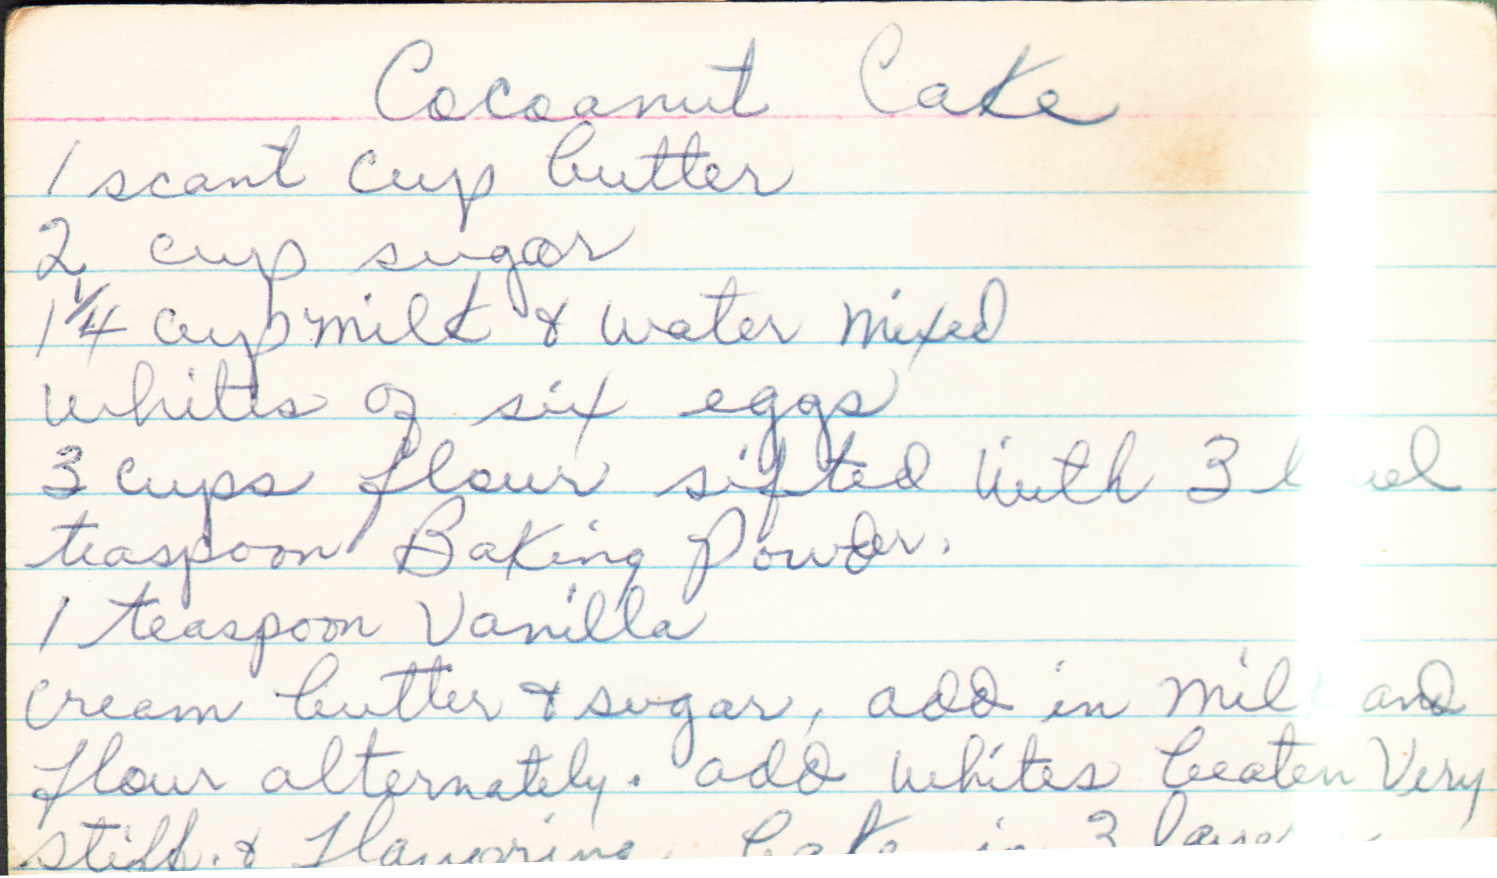 Cocoanut Cake
1 scant cup butter
2 cup sugar
1 1/4 cup milk & water mixed
whites of six eggs
3 cups flour sifted with 3 level
teaspoon Baking Powder.
1 teaspoon Vanilla
cream butter & sugar, add in milk and
flour alternately. add whites beaten Very
stiff. & Flavoring. bake in 3 layers